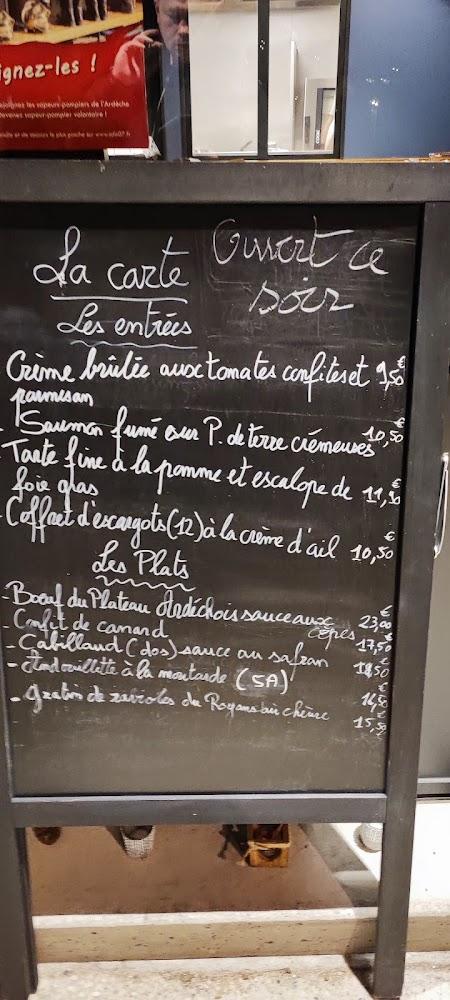 ignez-les !
ejoignez les sapeurs-pompiers de l'Ardèche
devenez sapeur-pompier volontaire !
La carte
Ouvert ce
soir
Les entrées
Crème brûlée aux tomates confites et 9,50 €
parmesan
- Saumon fumé sur P. de terre crémeuses 10,50 €
- Tarte fine à la pomme et escalope de 11,50 €
foie gras
- Coffret d'escargots (12) à la crème d'ail 10,50 €
Les Plats
- Boeuf du Plateau Ardéchois sauce aux 23,00 €
cèpes
- Confit de canard 17,50 €
- Cabillaud (dos) sauce au safran 18,50 €
- Andouillette à la moutarde (5A) 16,50 €
- Gratin de ravioles du Royans au chèvre 15,50 €